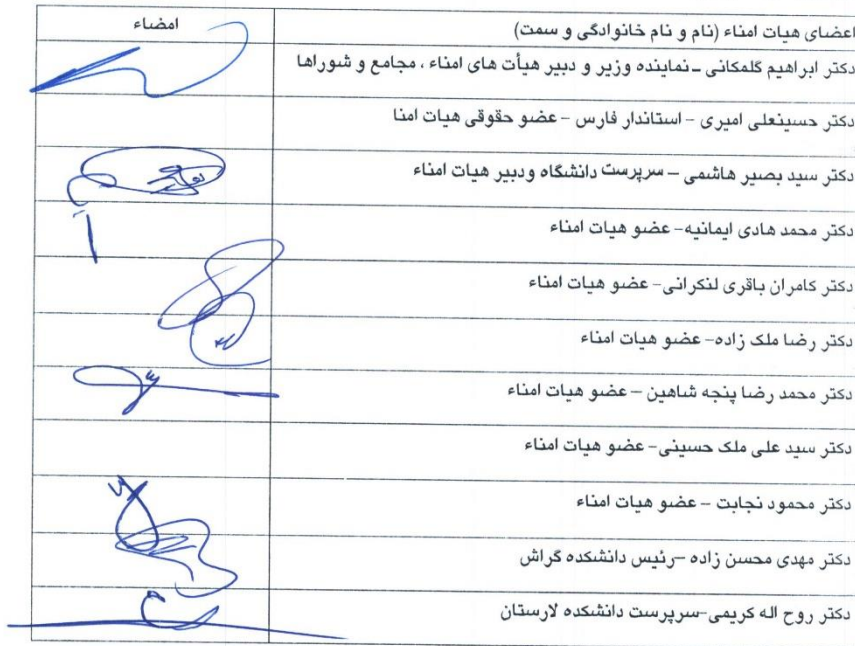 اعضای هیات امناء (نام و نام خانوادگی و سمت)
امضاء
دکتر ابراهیم گلمکانی – نماینده وزیر و دبیر هیأت های امناء ، مجامع و شوراها
دکتر حسینعلی امیری – استاندار فارس – عضو حقوقی هیات امنا
دکتر سید بصیر هاشمی – سرپرست دانشگاه ودبیر هیات امناء
دکتر محمد هادی ایمانیه- عضو هیات امناء
دکتر کامران باقری لنکرانی- عضو هیات امناء
دکتر رضا ملک زاده- عضو هیات امناء
دکتر محمد رضا پنجه شاهین – عضو هیات امناء
دکتر سید علی ملک حسینی- عضو هیات امناء
دکتر محمود نجابت – عضو هیات امناء
دکتر مهدی محسن زاده –رئیس دانشکده گراش
دکتر روح اله کریمی-سرپرست دانشکده لارستان